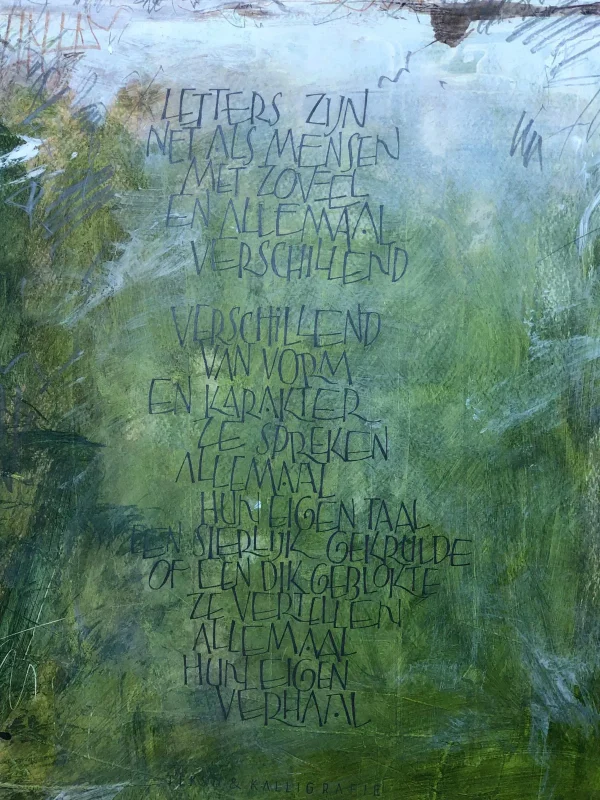 LETTERS ZIJN
NET ALS MENSEN
MET ZOVEEL
EN ALLEMAAL
VERSCHILLEND
VERSCHILLEND
VAN VORM
EN KARAKTER
ZE SPREKEN
ALLEMAAL
HUN EIGEN TAAL
EEN SIERLIJK GEKRULDE
OF EEN DIK GEBLOKTE
ZE VERTELLEN
ALLEMAAL
HUN EIGEN
VERHAAL
TEKST & KALLIGRAFIE